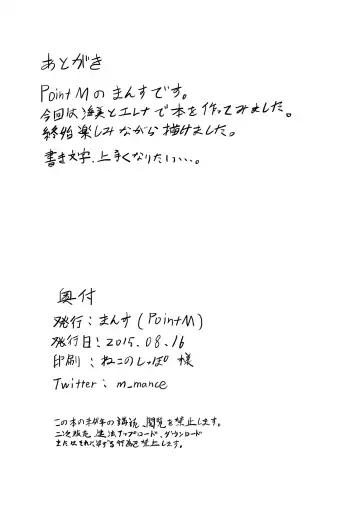 あとがき
Point Mのまんすです。
今回は海美とエレナで本を作ってみました。
終始楽しみながら描けました。
書き文字、上手くなりたい…。
奥付
発行:まんす(PointM)
発行日:2015.08.16
印刷:ねこのしっぽ様
Twitter:m_mance
この本の未成年の購読、閲覧を禁止します。
二次販売、違法アップロード、ダウンロード
またはそれに準ずる行為を禁止します。